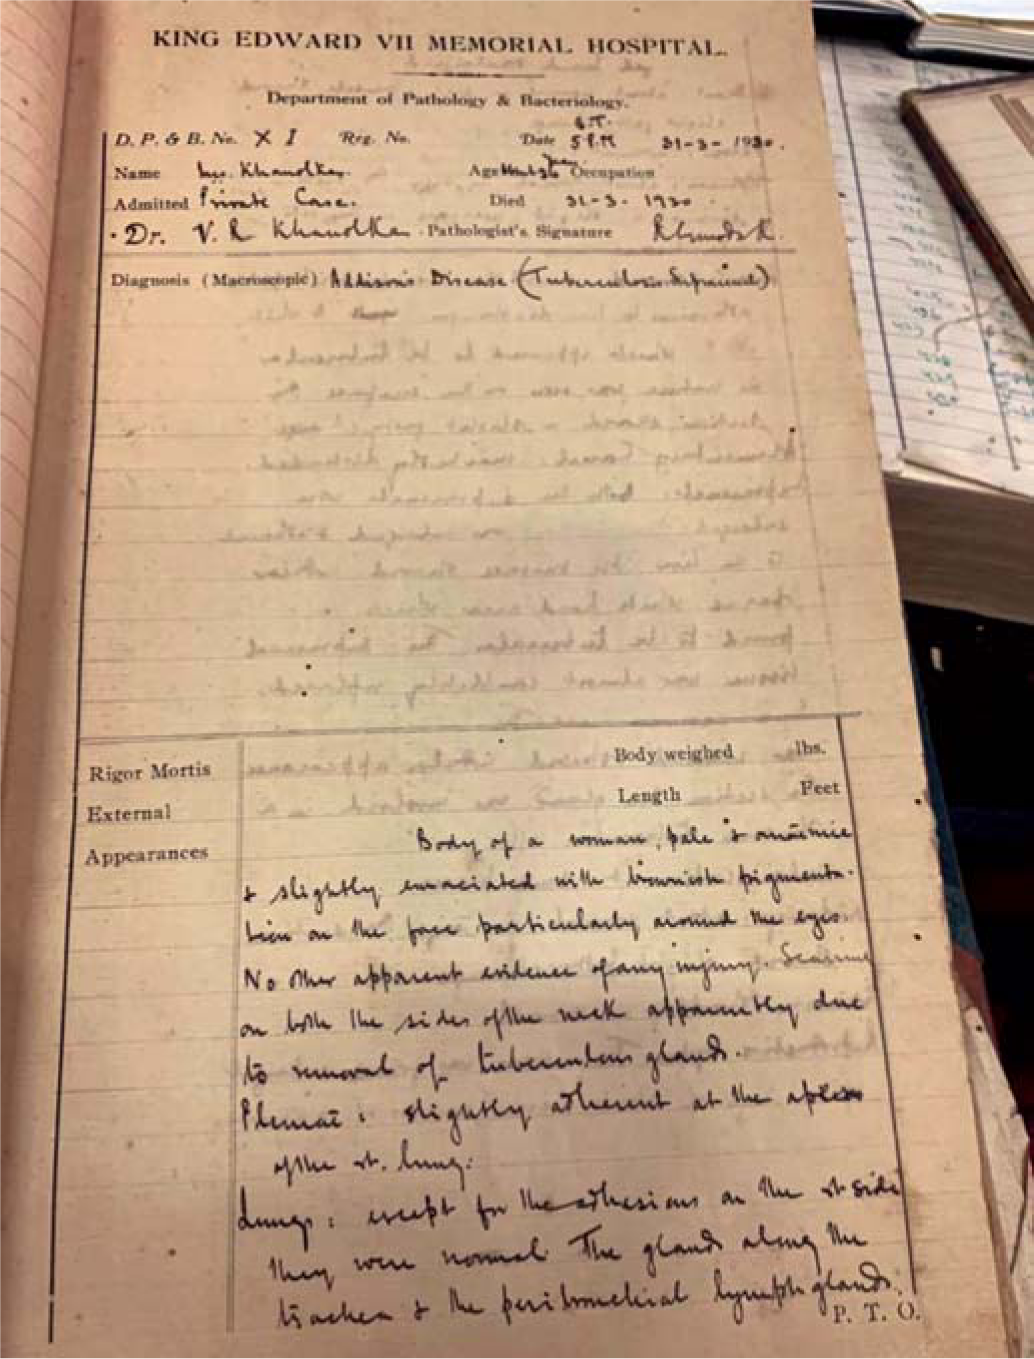 KING EDWARD VII MEMORIAL HOSPITAL.
Department of Pathology & Bacteriology.
D. P. & B. No. X I Reg. No. Date 5 P.M 31-3-1930.
Name Khandke. Age Occupation
Admitted Private Case. Died 31-3-1930
Dr. V. R Khandke Pathologist's Signature
Diagnosis (Macroscopic) Addison's Disease (Tuberculosis Suprarenal)
Rigor Mortis Body weighed lbs.
External Length Feet
Appearances Body of a woman, pale & anaemic
& slightly emaciated with brownish pigmenta-
tion on the face particularly around the eyes.
No other apparent evidence of any injury. Scarring
on both the sides of the neck apparently due
to removal of tuberculous glands.
Pleurae: slightly adherent at the apices
of the rt. lung:
Lungs: except for the adhesions on the rt side
they were normal. The glands along the
trachea & the peribronchial lymph glands.
P. T. O.